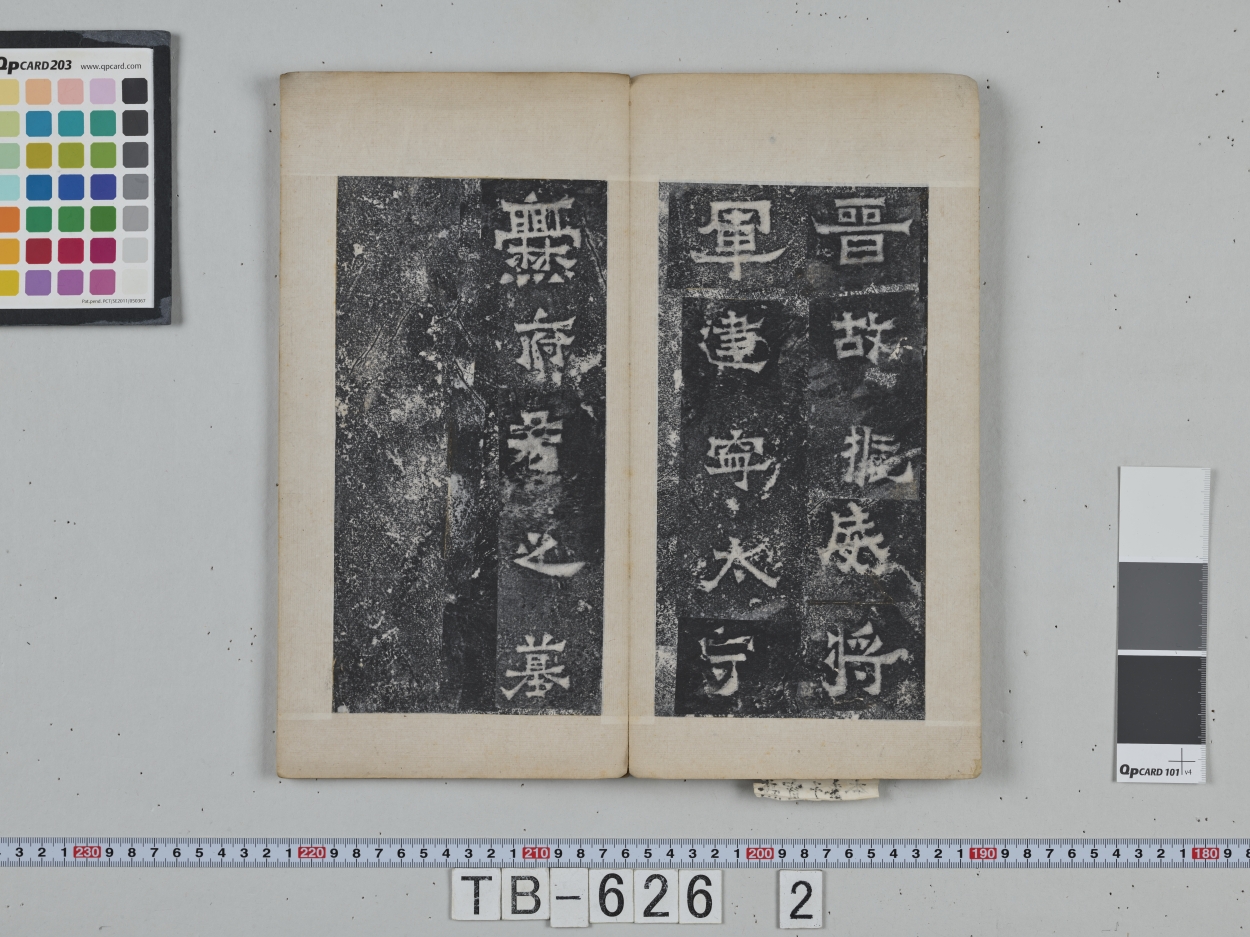 晉故振威將
軍建寧太守
爨府君之墓
QPCARD 203 www.qpcard.com
QPCARD 101 v4
3 2 1 230 9 8 7 6 5 4 3 2 1 220 9 8 7 6 5 4 3 2 1 210 9 8 7 6 5 4 3 2 1 200 9 8 7 6 5 4 3 2 1 190 9 8 7 6 5 4 3 2 1 180 9 8
TB-626 2